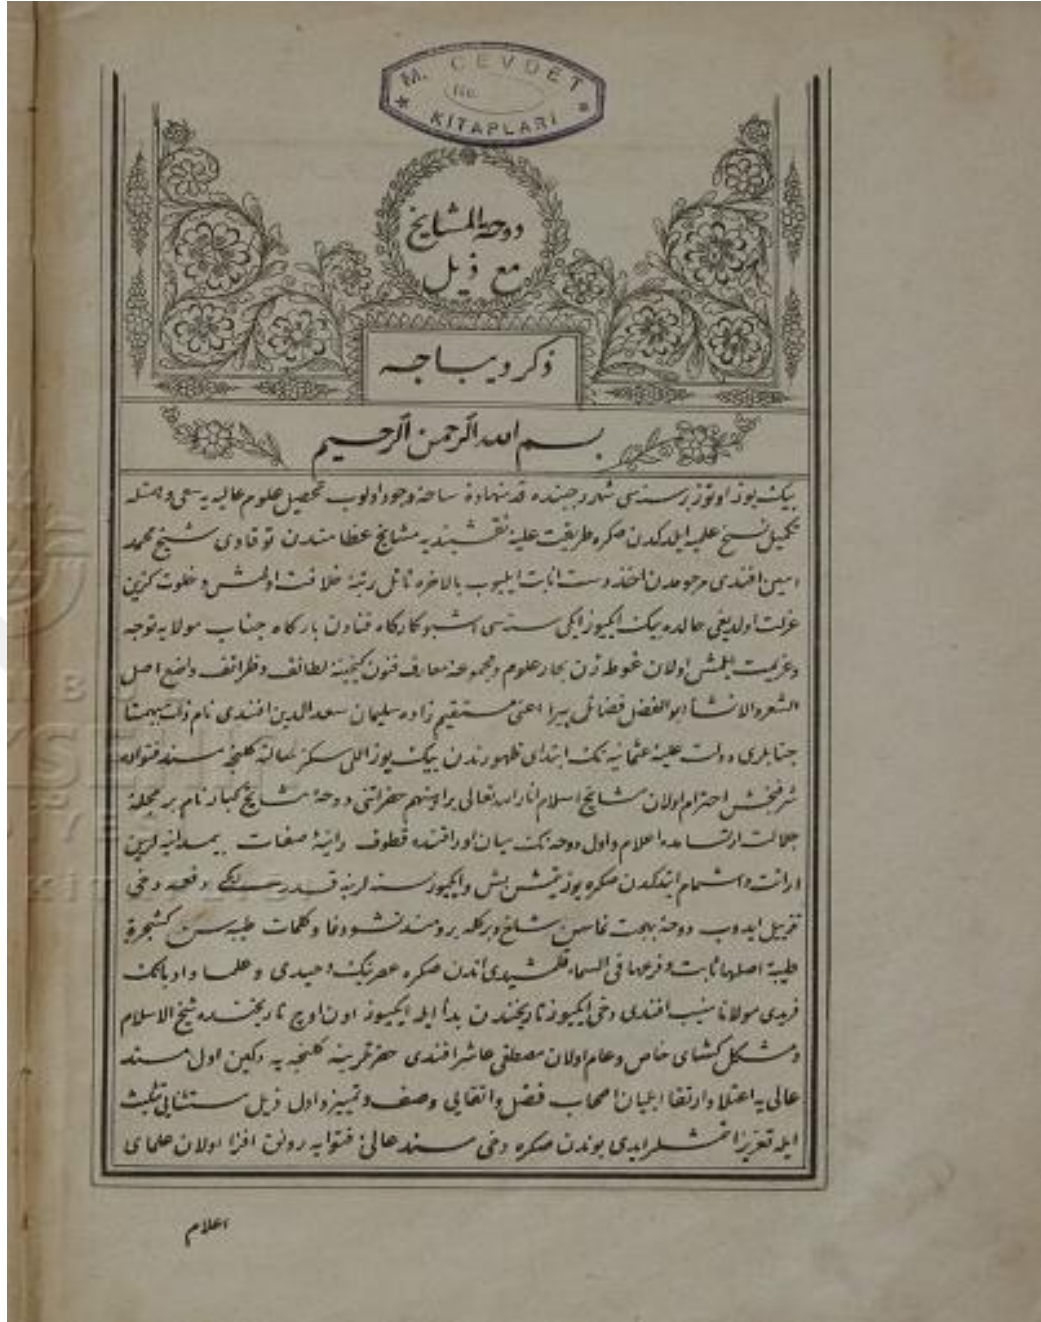 M. CEVDET
No.
KİTAPLARI
دوحة المشايخ
مع ذيل
ذكر ديباجه
بسم الله الرحمن الرحيم
بيك يوز اوتوز بر سنه‌سى شهر رجبنده قدم نهادۀ ساحۀ وجود اولوب تحصيل علوم عاليه‌يه سعى و همتله
تكميل نسخ علميه ايلدكدن صكره طريقت عليۀ نقشبنديه مشايخ عظامندن توقادى شيخ محمد
امين افندى مرحومدن اخذ دست انابت ايليوب بالاخره نائل رتبۀ خلافت اولمش و خلوت كزين
عزلت اولديغى حالده بيك ايكيوز ايكى سنه‌سى اشبو كاركاه فنادن باركاه جناب مولايه توجه
و عزيمت ايلمش اولان غوطه زن بحار علوم و مجموعۀ معارف فنون كنجينۀ لطائف و ظرائف واضع اصل
الشعر و الانشا ابو الفضل فضائل پيرا اعنى مستقيم زاده سليمان سعد الدين افندى نام ذات بيهمتا
جنابلرى دولت عليۀ عثمانيه نك ابتداى ظهورندن بيك يوز اللى سكز سالنه كلنجه مسند فتوالە
شرفبخش احترام اولان مشايخ اسلام انار الله تعالى براهينهم حضراتنى دوحۀ مشايخ كبار نام بر مجلۀ
جلالت ارتسامده اعلام و اول دوحه نك ميان اوراقنده قطوف دانيۀ صفات بيمدانيه لرين
ارائت و اشمام ايتدكدن صكره يوز يتمش بش و ايكيوز سنه لرينه قدر ايكى دفعه دخى
تذييل ايدوب دوحۀ بهجت نماسن شاخ و بركله برومند نشو و نما و كلمات طيبه سن كشجرة
طيبة اصلها ثابت و فرعها فى السماء قلمشيدى اندن صكره عصرينك وحيدى و علما و ادبانك
فريدى مولانا منيب افندى دخى ايكيوز تاريخندن بدأ ايله ايكيوز اون اوچ تاريخنده شيخ الاسلام
و مشكل كشاى خاص و عام اولان مصطفى عاشر افندى حضرتلرينه كلنجه يه دكين اول مسند
عالى يه اعتلا و ارتقا ايليان اصحاب فضل و اتقايى وصف و تمييز و اول ذيل مستثنايى تثليث
ايله تعزيز ايتمشلر ايدى بوندن صكره دخى مسند عالئ فتوايه رونق افزا اولان علماى
اعلام